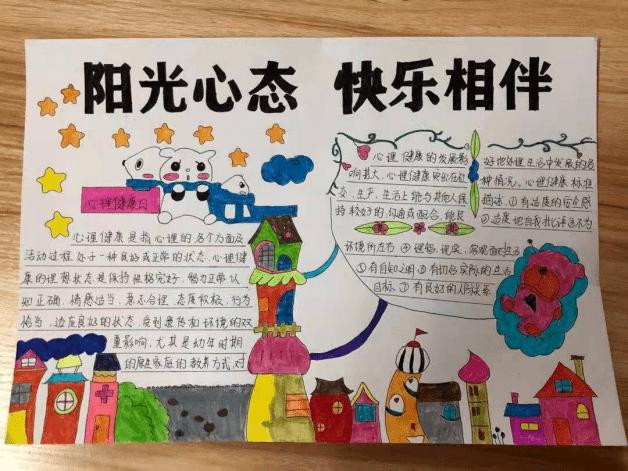 阳光心态 快乐相伴
心理健康日
心理健康是指心理的各个方面及
活动过程处于一种良好或正常的状态.心理健
康的理想状态是保持性格完好、智力正常、认
知正确、情感适当、意志合理、态度积极、行为
恰当、适应良好的状态.受到遗传和环境的双
重影响,尤其是幼年时期
的原生家庭的教养方式,对
心理健康的发展影
响甚大.心理健康突出在社
交、生产、生活上能与其他人保
持较好的沟通或配合,能良
好地处理生活中发展的各
种情况。心理健康标准
描述:①有适度的安全感
②适度地自我批评
环境所左右
④理智、现实、客观
①有自知之明
②有切合实际的生活
目标、
有良好的人际关系